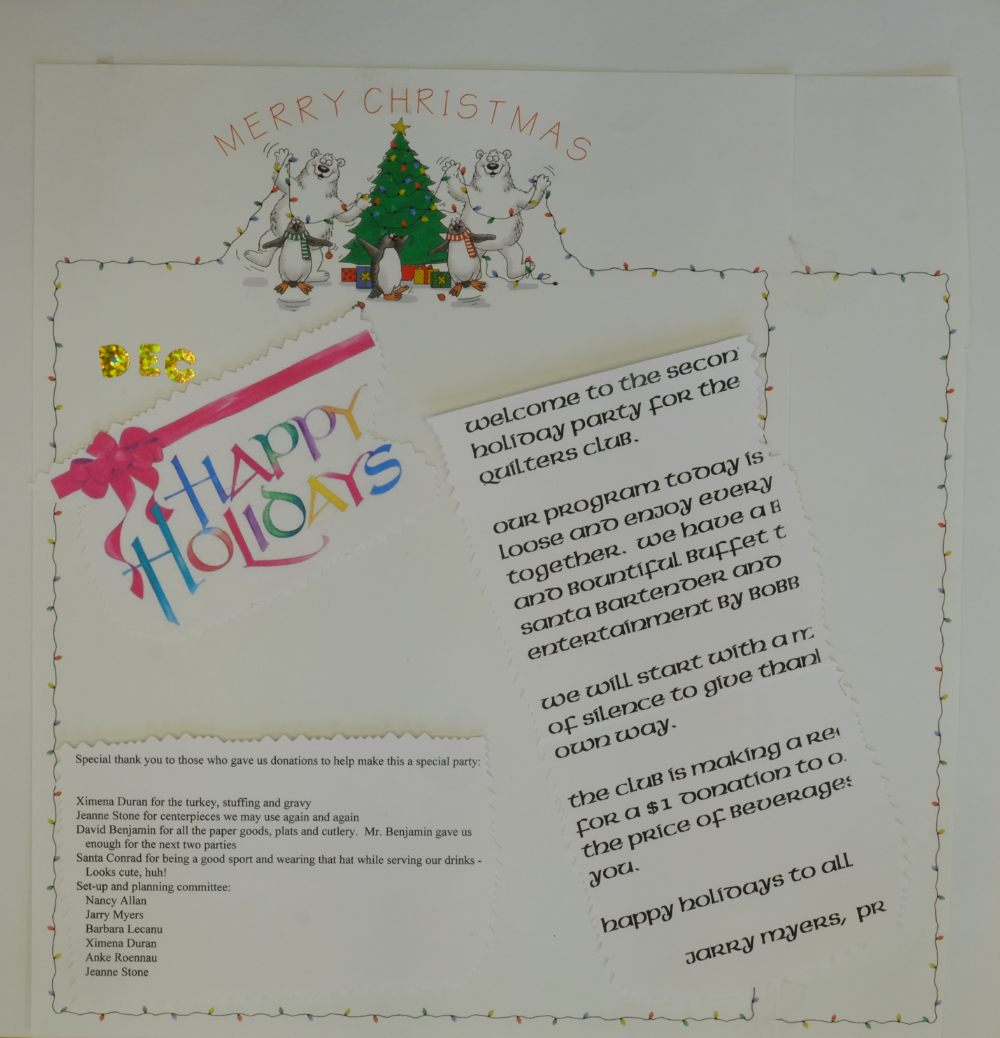 MERRY CHRISTMAS
DEC
HAPPY
HOLIDAYS
welcome to the secon
holiday party for the
quilters club.
our program today is
loose and enjoy every
together. we have a B
and bountiful buffet t
santa bartender and
entertainment by bobb
we will start with a m
of silence to give thank
own way.
the club is making a re
for a $1 donation to o
the price of beverages
you.
happy holidays to all
jarry myers, pr
Special thank you to those who gave us donations to help make this a special party:
Ximena Duran for the turkey, stuffing and gravy
Jeanne Stone for centerpieces we may use again and again
David Benjamin for all the paper goods, plats and cutlery. Mr. Benjamin gave us
enough for the next two parties
Santa Conrad for being a good sport and wearing that hat while serving our drinks -
Looks cute, huh!
Set-up and planning committee:
Nancy Allan
Jarry Myers
Barbara Lecanu
Ximena Duran
Anke Roennau
Jeanne Stone